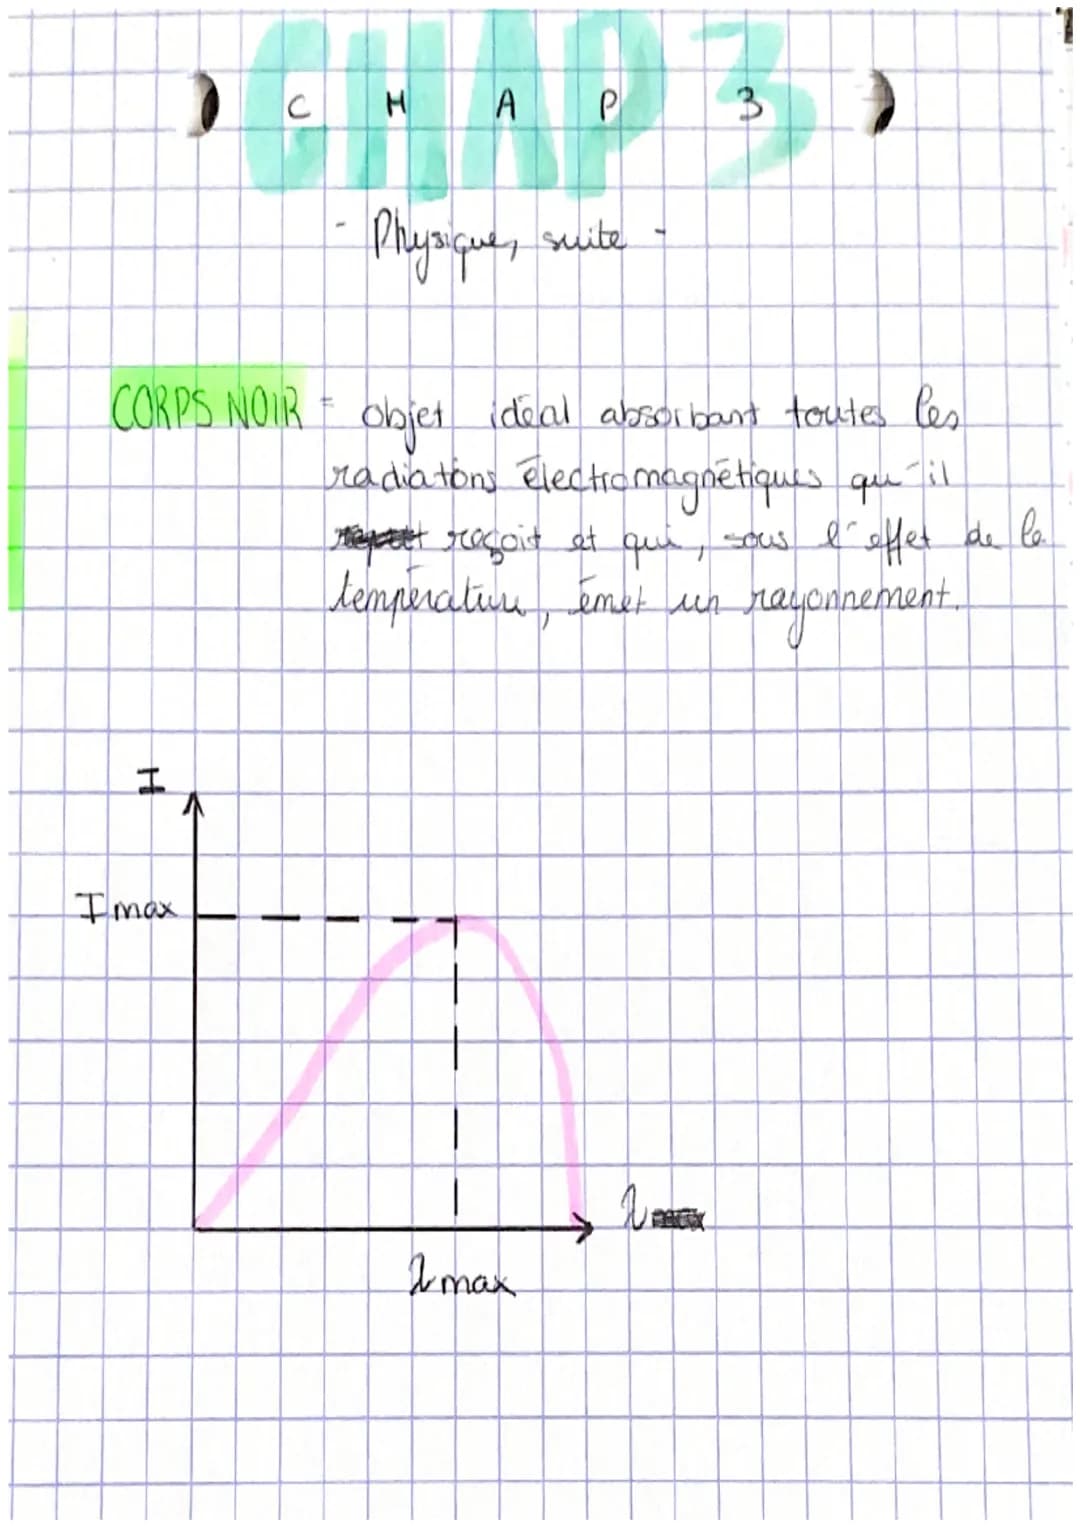 CHAP 3
C H A P 3
- Physique, suite -
CORPS NOIR = objet idéal absorbant toutes les
radiations électromagnétiques qu'il
reçoit et qui, sous l'effet de la
température, émet un rayonnement.
I
I max
λ
λ max